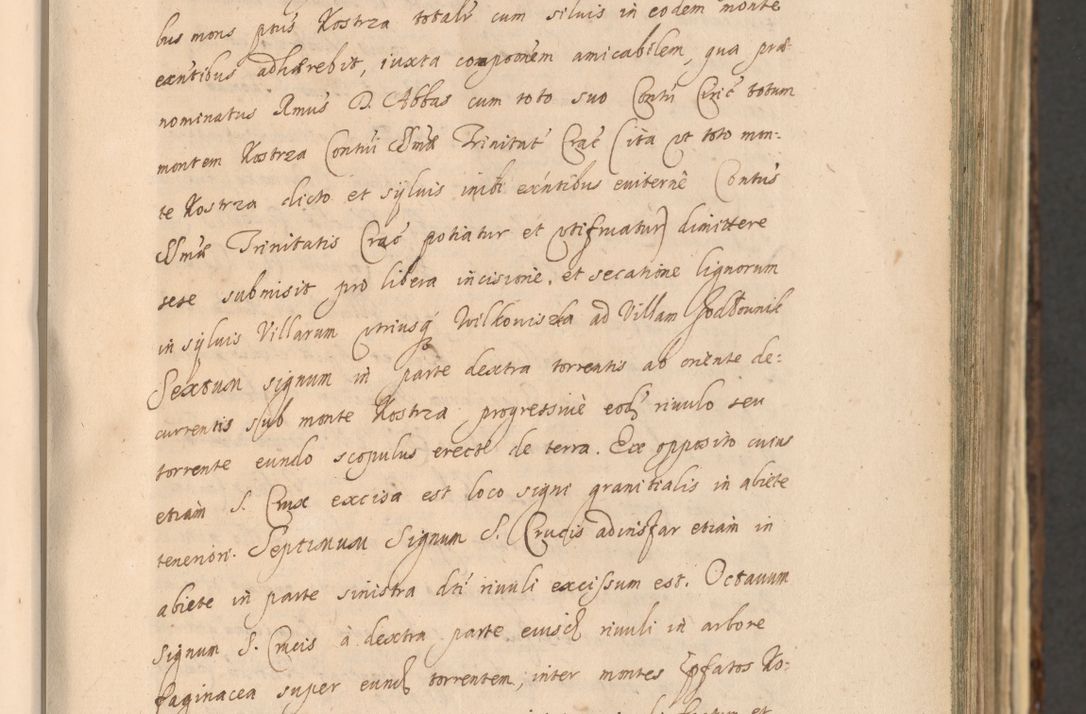 bus mons ptus Kostrza totalr cum siluis in eodem monte
exntibus adhærebit, iuxta componem amicabilem, qua præ-
nominatus Rmus D. Abbas cum toto suo Contu Circ totum
montem Kostrza Contui SSmæ Trinitat Crac (ita vt toto mon:
te Kostrza dicto et syluis inibi exntibus euiternè Contus
SSmæ Trinitatis Crac potiatur et vtifruatur) dimittere
sese submisit pro libera incisione, et secatione lignorum
in syluis Villarum vtriusq Wilkowiszka ad Villam Podłounik
Sextum signum in parte dextra torrentis ab oriente de:
currentis sub monte Kostrza progressiuè eod riuulo seu
torrente eundo scopulus erect de terra. Ex opposito cuius
etiam S. Crux excisa est loco signi granitialis in abiete
teneriori. Septimum Signum S. Crucis adinstar etiam in
abiete in parte sinistra dti riuuli excissum est. Octauum
Signum S. Crucis à dextra parte eiusd riuuli in arbore
faginacea super eund torrentem, inter montes pfatos Ko: